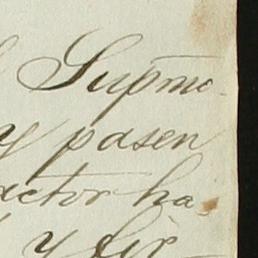 Supmo.
y pasen
actor ha-
y fir